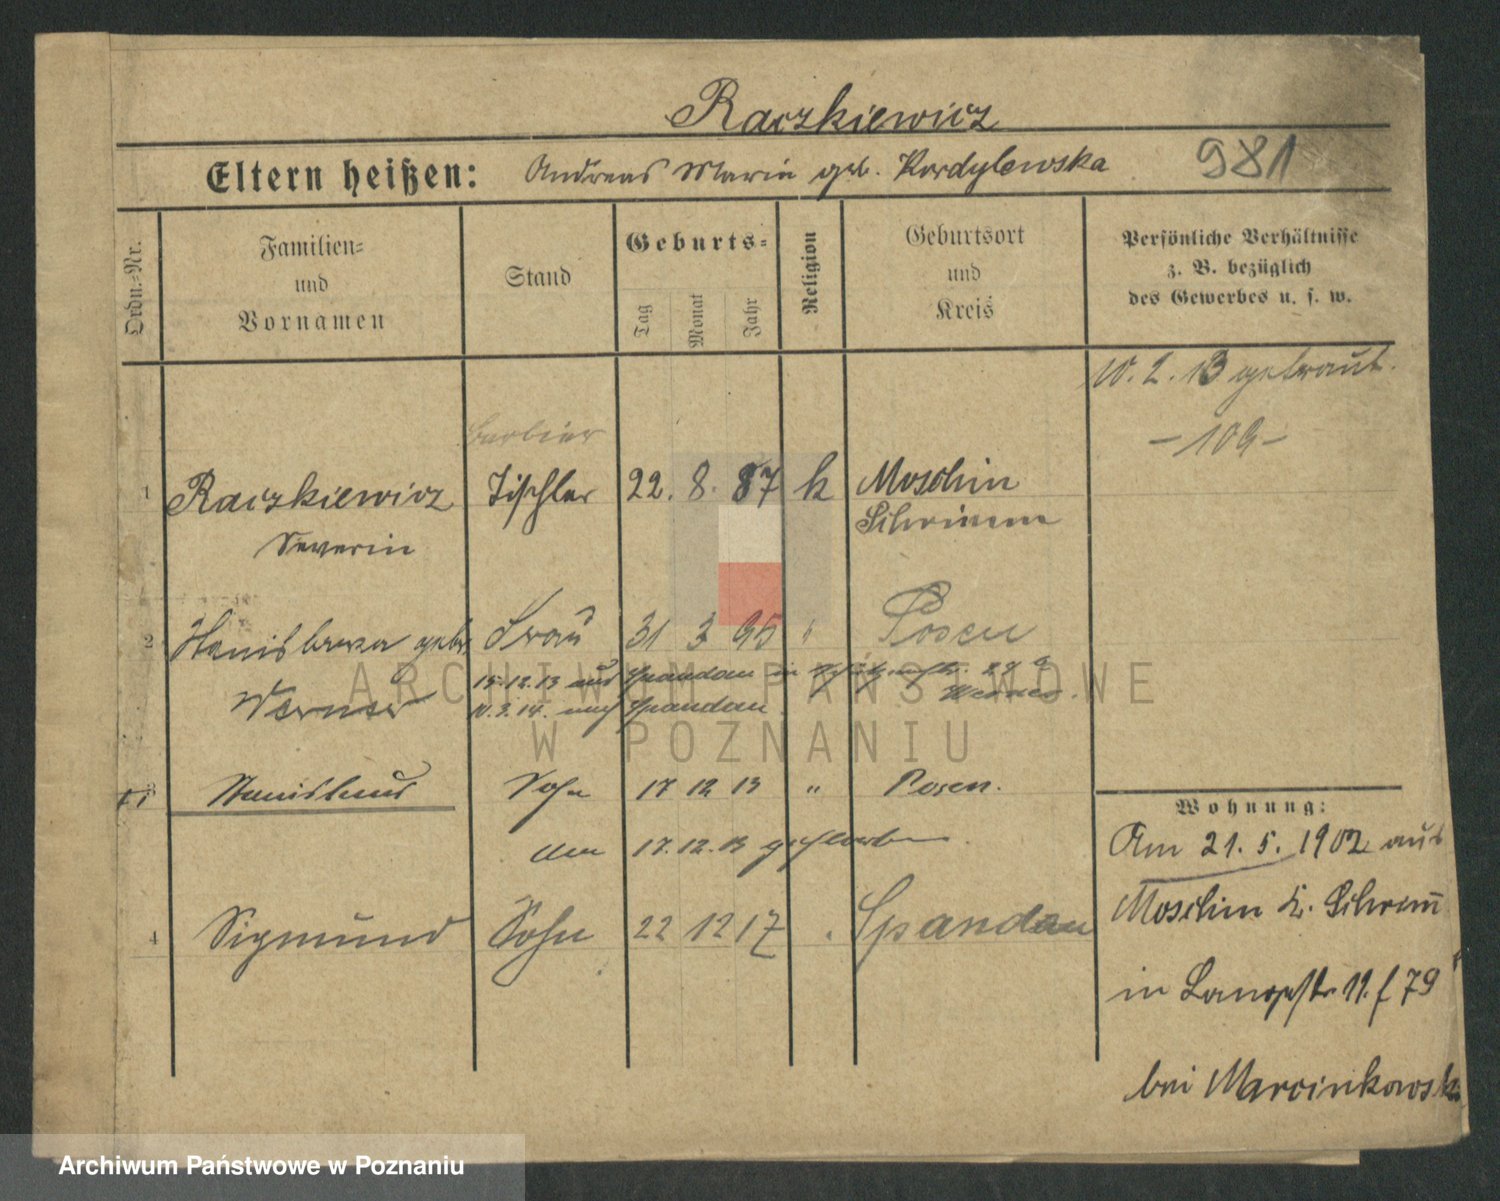 Raczkiewicz
Eltern heißen: Andreas Maria geb. Kordylewska 981
Ordn.=Nr.
Familien=
und
Vornamen
Stand
Geburts=
Tag
Monat
Jahr
Religion
Geburtsort
und
Kreis
Persönliche Verhältnisse
z. B. bezüglich
des Gewerbes u. s. w.
10. 2. 13 getraut.
Barbier
- 109 -
1 Raczkiewicz Tischler 22. 8. 87 k Moschin
Severin Schrimm
2 Stanislawa geb. Frau 31 3 95 " Posen
Werner
15.12.13 aus Spandau in
11.3.14. nach Spandau
Stanislaus Sohn 17 12 13 " Posen.
am 17.12.13 gestorben
4 Sigmund Sohn 22 12 17 Spandau
Wohnung:
Am 21. 5. 1902 aus
Moschin K. Schrimm
in Langestr 11. f 79
bei Marcinkowski
ARCHIWUM PAŃSTWOWE
W POZNANIU
Archiwum Państwowe w Poznaniu